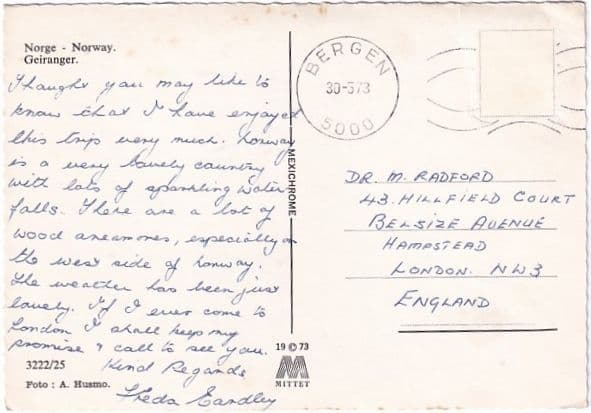 Norge - Norway.
Geiranger.
I haught you may like to
know that I have enjoyed
this trip very much. Norway
is a very lovely country
with lots of sparkling water
falls. There are a lot of
wood aneamones, especially on
the west side of Norway.
The weather has been just
lovely. If I ever come to
London I shall keep my
promise & call to see you.
Kind Regards
Freda Eardley
3222/25
Foto : A. Husmo.
MEXICHROME
19 © 73
MITTET
BERGEN
30-5 73
5000
DR. M. RADFORD
43. HILLFIELD COURT
BELSIZE AVENUE
HAMPSTEAD
LONDON. NW3
ENGLAND